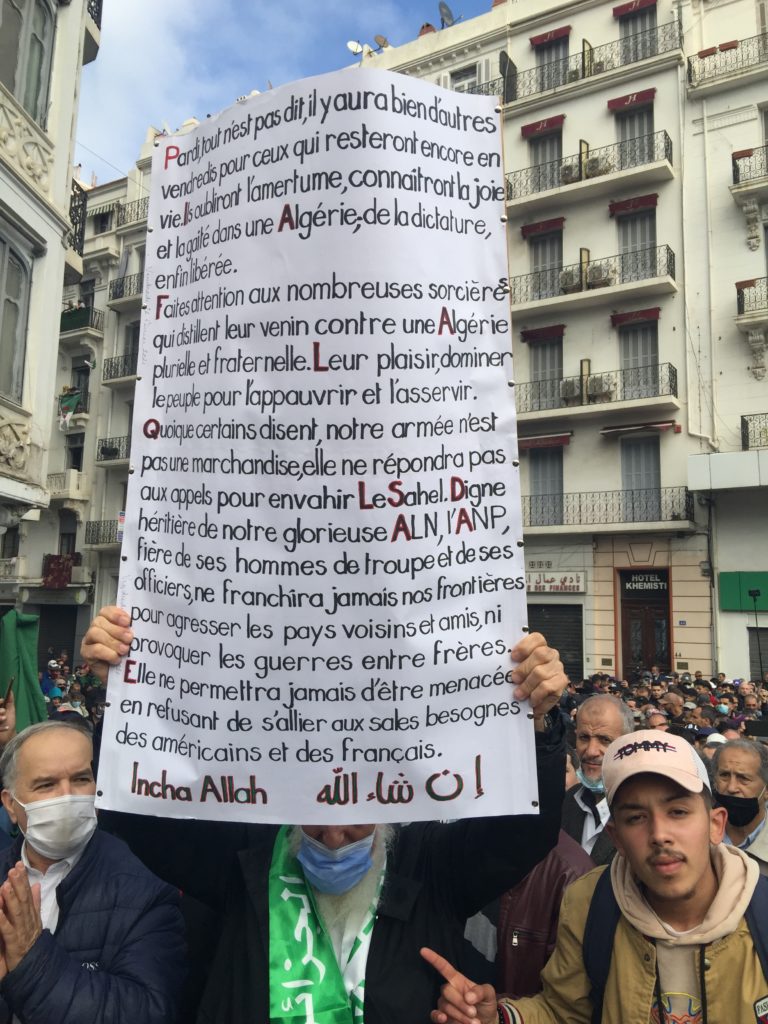 Pardi, tout n'est pas dit, il y aura bien d'autres
vendredis pour ceux qui resteront encore en
vie. Ils oubliront l'amertume, connaîtront la joie
et la gaité dans une Algérie, de la dictature,
enfin libérée.
Faites attention aux nombreuses sorcières
qui distillent leur venin contre une Algérie
plurielle et fraternelle. Leur plaisir, dominer
le peuple pour l'appauvrir et l'asservir.
Quoique certains disent, notre armée n'est
pas une marchandise, elle ne répondra pas
aux appels pour envahir Le Sahel. Digne
héritière de notre glorieuse ALN, l'ANP,
fière de ses hommes de troupe et de ses
officiers, ne franchira jamais nos frontières
pour agresser les pays voisins et amis, ni
provoquer les guerres entre frères.
Elle ne permettra jamais d'être menacée
en refusant de s'allier aux sales besognes
des américains et des français.
Incha Allah إن شاء الله
HOTEL
KHEMISTI
44
نادي عمال
DES FINANCES
TOMMY
الجزائر